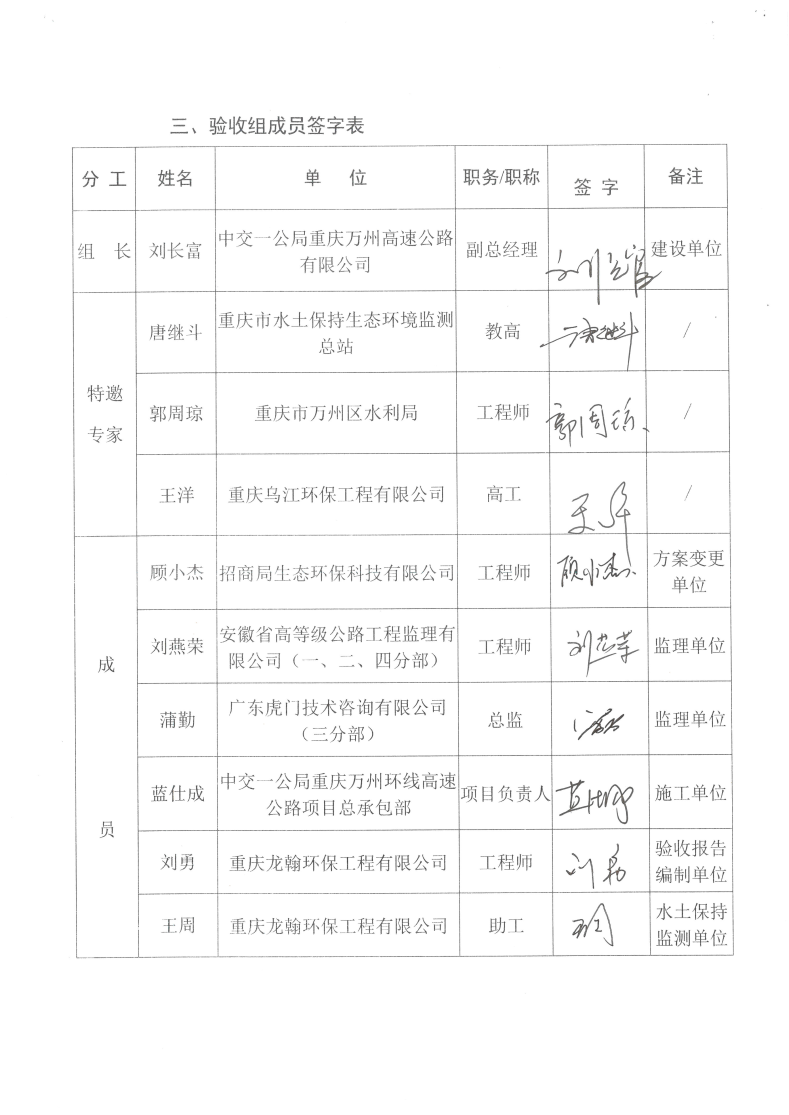 三、验收组成员签字表
分 工 姓名 单 位 职务/职称 签 字 备注
组 长 刘长富 中交一公局重庆万州高速公路 副总经理 刘长富 建设单位
有限公司
特邀
专家
唐继斗 重庆市水土保持生态环境监测 教高 唐继斗 /
总站
郭周琼 重庆市万州区水利局 工程师 郭周琼 /
王洋 重庆乌江环保工程有限公司 高工 王洋 /
成
员
顾小杰 招商局生态环保科技有限公司 工程师 顾小杰 方案变更
单位
刘燕荣 安徽省高等级公路工程监理有 工程师 刘燕荣 监理单位
限公司（一、二、四分部）
蒲勤 广东虎门技术咨询有限公司 总监 蒲勤 监理单位
（三分部）
蓝仕成 中交一公局重庆万州环线高速 项目负责人 蓝仕成 施工单位
公路项目总承包部
刘勇 重庆龙翰环保工程有限公司 工程师 刘勇 验收报告
编制单位
王周 重庆龙翰环保工程有限公司 助工 王周 水土保持
监测单位